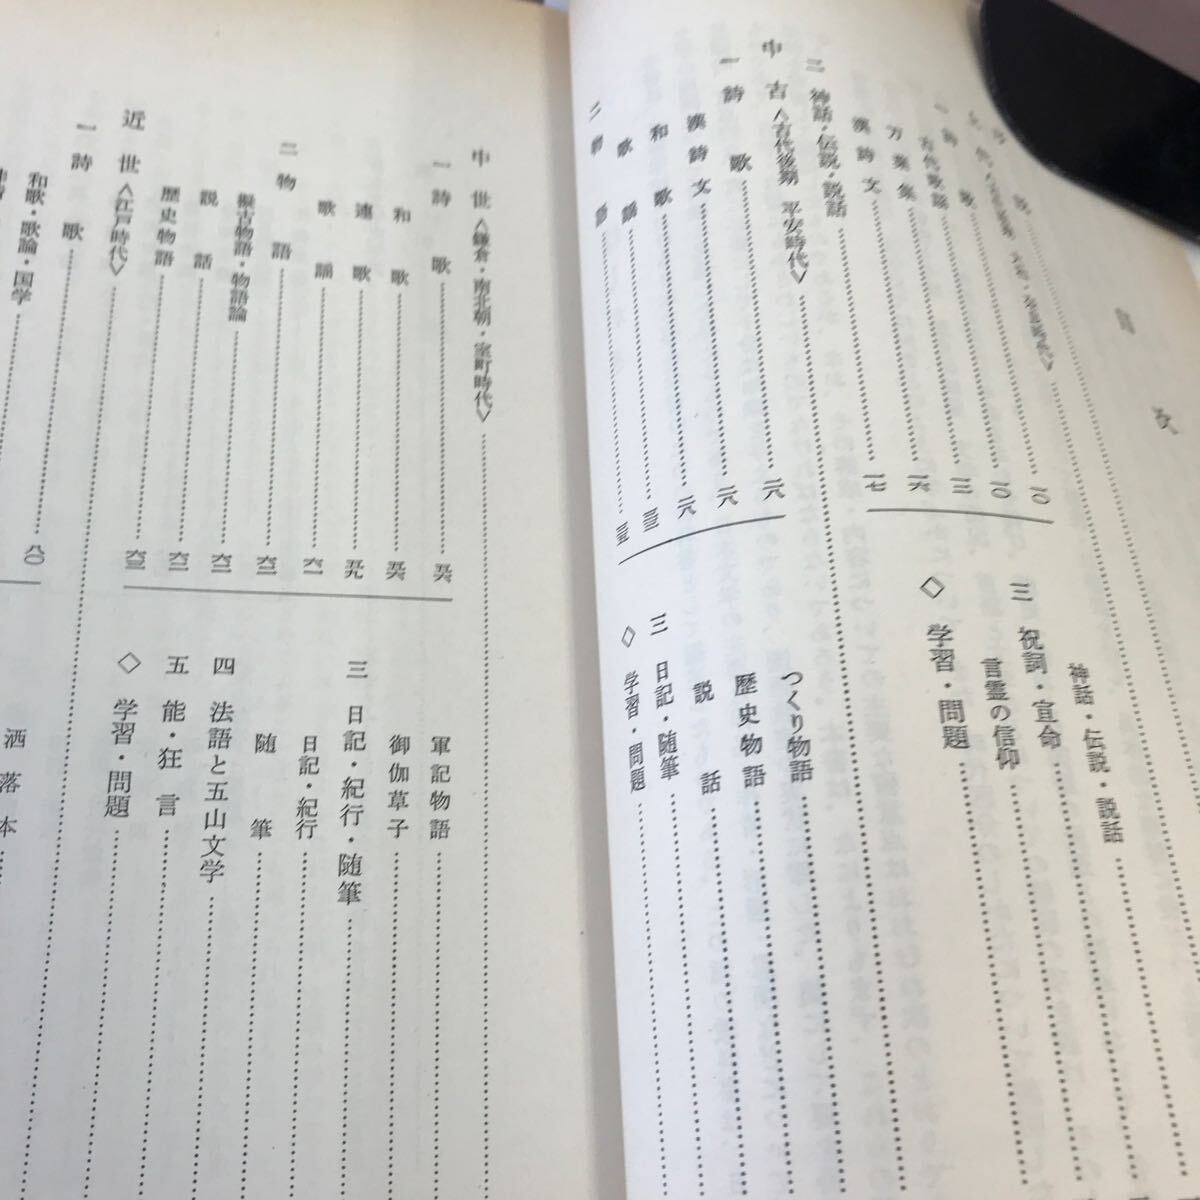 目次
一 詩歌
古代歌謡 一二
万葉集 一六
漢詩文 一七
二 神話・伝説・説話
神話・伝説・説話
三 祝詞・宣命
言霊の信仰
◇ 学習・問題
中古〈古代後期 平安時代〉
一 詩歌 二八
漢詩文 二八
和歌 二八
歌謡 三三
二 物語 三五
つくり物語
歴史物語
説話
三 日記・随筆
◇ 学習・問題
中世〈鎌倉・南北朝・室町時代〉
一 詩歌 五六
和歌 五六
連歌 五九
歌謡 六一
二 物語 六二
擬古物語・物語論 六二
説話 六二
歴史物語 六三
軍記物語
御伽草子
三 日記・紀行・随筆
日記・紀行
随筆
四 法語と五山文学
五 能・狂言
◇ 学習・問題
近世〈江戸時代〉
一 詩歌 八〇
和歌・歌論・国学
洒落本